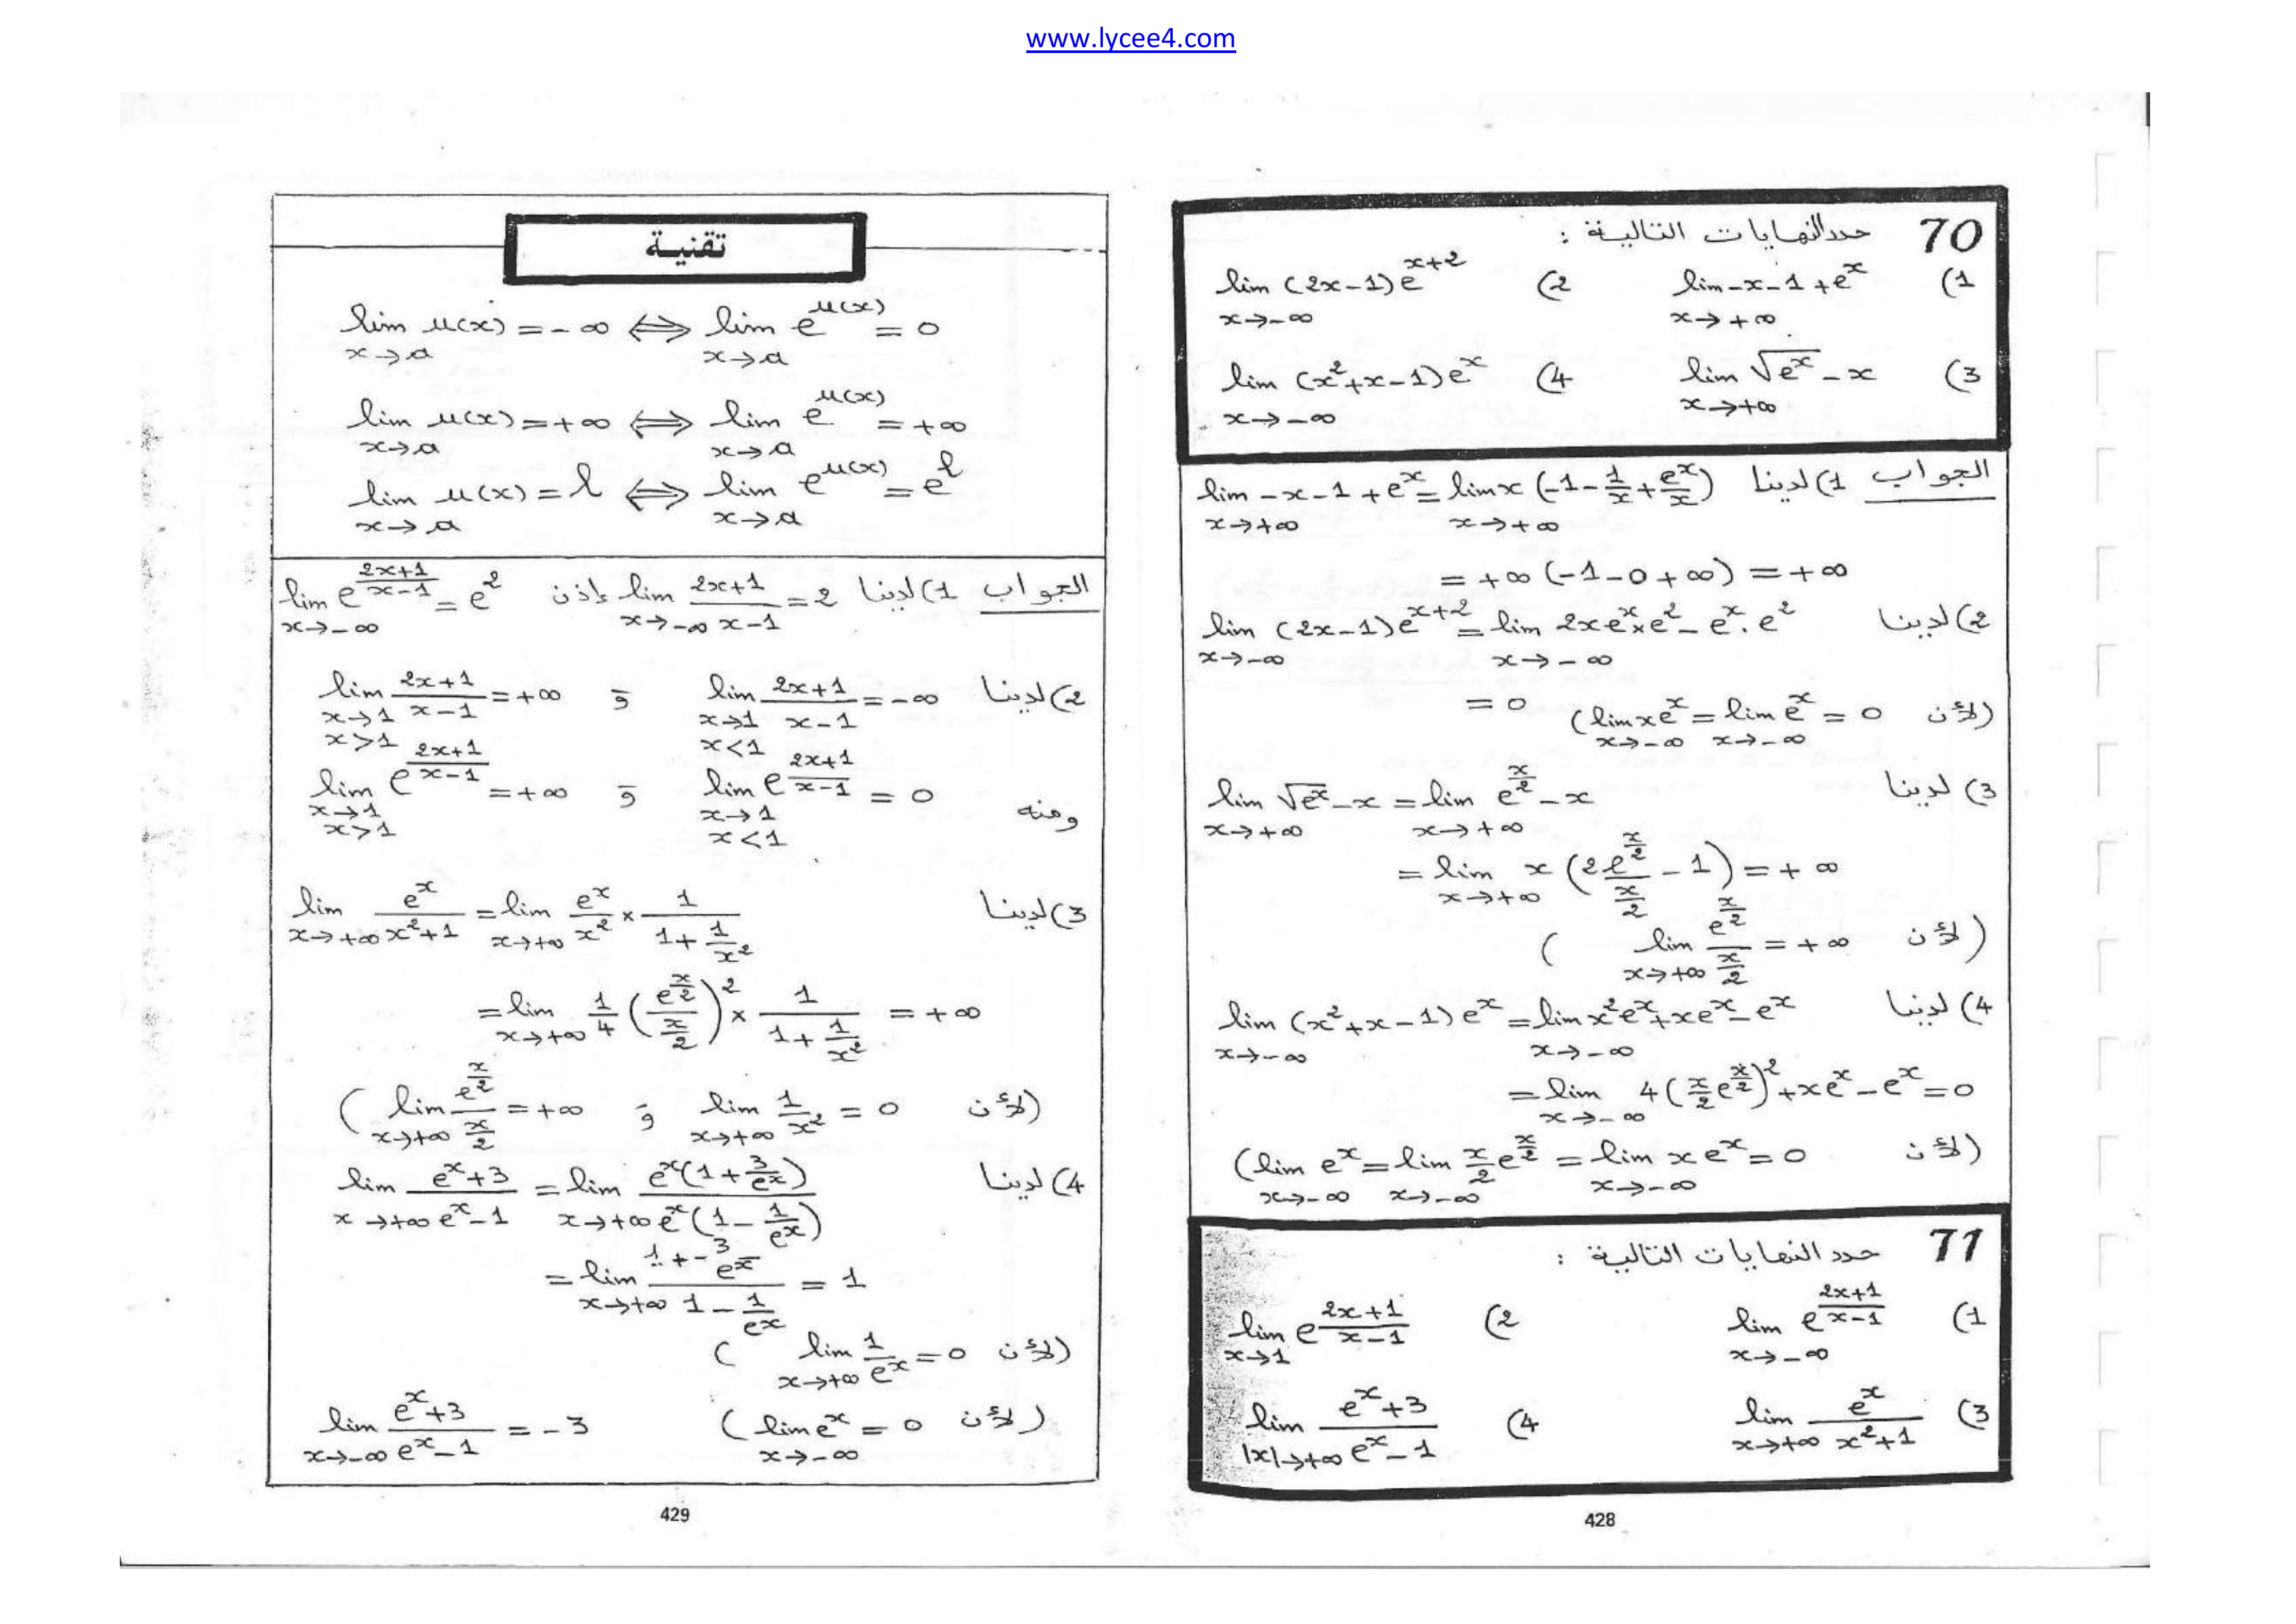 www.lycee4.com
70 حدد النهايات التالية :
1) lim_{x→+∞} -x-1+e^x    2) lim_{x→-∞} (2x-1)e^{x+2}
3) lim_{x→+∞} √(e^x) - x    4) lim_{x→-∞} (x²+x-1)e^x
الجواب 1) لدينا lim_{x→+∞} -x-1+e^x = lim_{x→+∞} x(-1-1/x+e^x/x)
= +∞(-1-0+∞) = +∞
2) لدينا lim_{x→-∞} (2x-1)e^{x+2} = lim_{x→-∞} 2xe^x×e² - e^x.e²
= 0 (لأن lim_{x→-∞} xe^x = lim_{x→-∞} e^x = 0)
3) لدينا lim_{x→+∞} √(e^x) - x = lim_{x→+∞} e^{x/2} - x
= lim_{x→+∞} x(2 e^{x/2}/(x/2) - 1) = +∞
(لأن lim_{x→+∞} e^{x/2}/(x/2) = +∞)
4) لدينا lim_{x→-∞} (x²+x-1)e^x = lim_{x→-∞} x²e^x+xe^x-e^x
= lim_{x→-∞} 4(x/2 e^{x/2})²+xe^x-e^x = 0
(لأن lim_{x→-∞} e^x = lim_{x→-∞} x/2 e^{x/2} = lim_{x→-∞} xe^x = 0)
71 حدد النهايات التالية :
1) lim_{x→-∞} e^{(2x+1)/(x-1)}    2) lim_{x→1} e^{(2x+1)/(x-1)}
3) lim_{x→+∞} e^x/(x²+1)    4) lim_{|x|→+∞} (e^x+3)/(e^x-1)
428
تقنية
lim_{x→a} u(x) = -∞ ⟺ lim_{x→a} e^{u(x)} = 0
lim_{x→a} u(x) = +∞ ⟺ lim_{x→a} e^{u(x)} = +∞
lim_{x→a} u(x) = l ⟺ lim_{x→a} e^{u(x)} = e^l
الجواب 1) لدينا lim_{x→-∞} (2x+1)/(x-1) = 2 إذن lim_{x→-∞} e^{(2x+1)/(x-1)} = e²
2) لدينا lim_{x→1, x<1} (2x+1)/(x-1) = -∞ و lim_{x→1, x>1} (2x+1)/(x-1) = +∞
ومنه lim_{x→1, x<1} e^{(2x+1)/(x-1)} = 0 و lim_{x→1, x>1} e^{(2x+1)/(x-1)} = +∞
3) لدينا lim_{x→+∞} e^x/(x²+1) = lim_{x→+∞} e^x/x² × 1/(1+1/x²)
= lim_{x→+∞} 1/4 (e^{x/2}/(x/2))² × 1/(1+1/x²) = +∞
(لأن lim_{x→+∞} 1/x² = 0 و lim_{x→+∞} e^{x/2}/(x/2) = +∞
4) لدينا lim_{x→+∞} (e^x+3)/(e^x-1) = lim_{x→+∞} e^x(1+3/e^x)/e^x(1-1/e^x)
= lim_{x→+∞} (1+3/e^x)/(1-1/e^x) = 1
(لأن lim_{x→+∞} 1/e^x = 0)
(لأن lim_{x→-∞} e^x = 0) lim_{x→-∞} (e^x+3)/(e^x-1) = -3
429